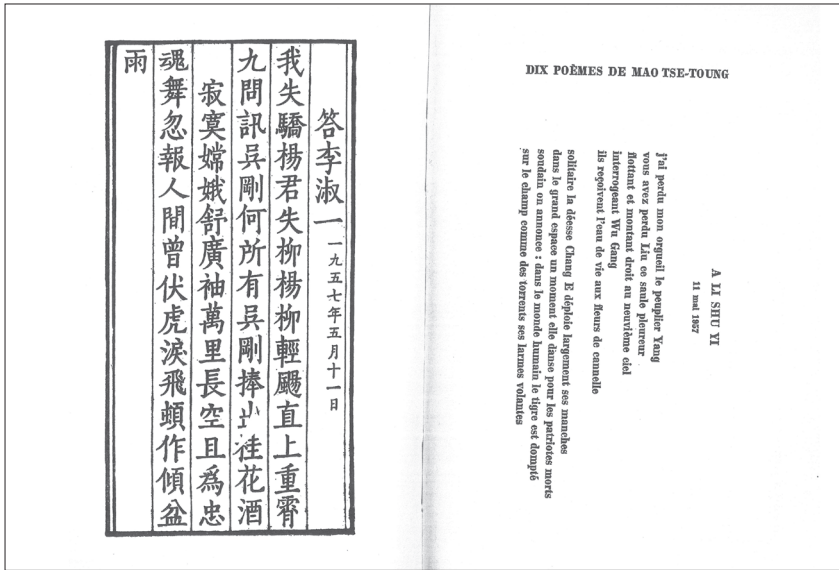 答李淑一 一九五七年五月十一日
我失驕楊君失柳楊柳輕颺直上重霄
九問訊吳剛何所有吳剛捧出桂花酒
寂寞嫦娥舒廣袖萬里長空且爲忠
魂舞忽報人間曾伏虎淚飛頓作傾盆
雨
DIX POÈMES DE MAO TSE-TOUNG
A LI SHU YI
11 mai 1957
j'ai perdu mon orgueil le peuplier Yang
vous avez perdu Liu ce saule pleureur
flottant et montant droit au neuvième ciel
interrogeant Wu Gang
ils reçoivent l'eau de vie aux fleurs de cannelle
solitaire la déesse Chang E déploie largement ses manches
dans le grand espace un moment elle danse pour les patriotes morts
soudain on annonce : dans le monde humain le tigre est dompté
sur le champ comme des torrents ses larmes volantes